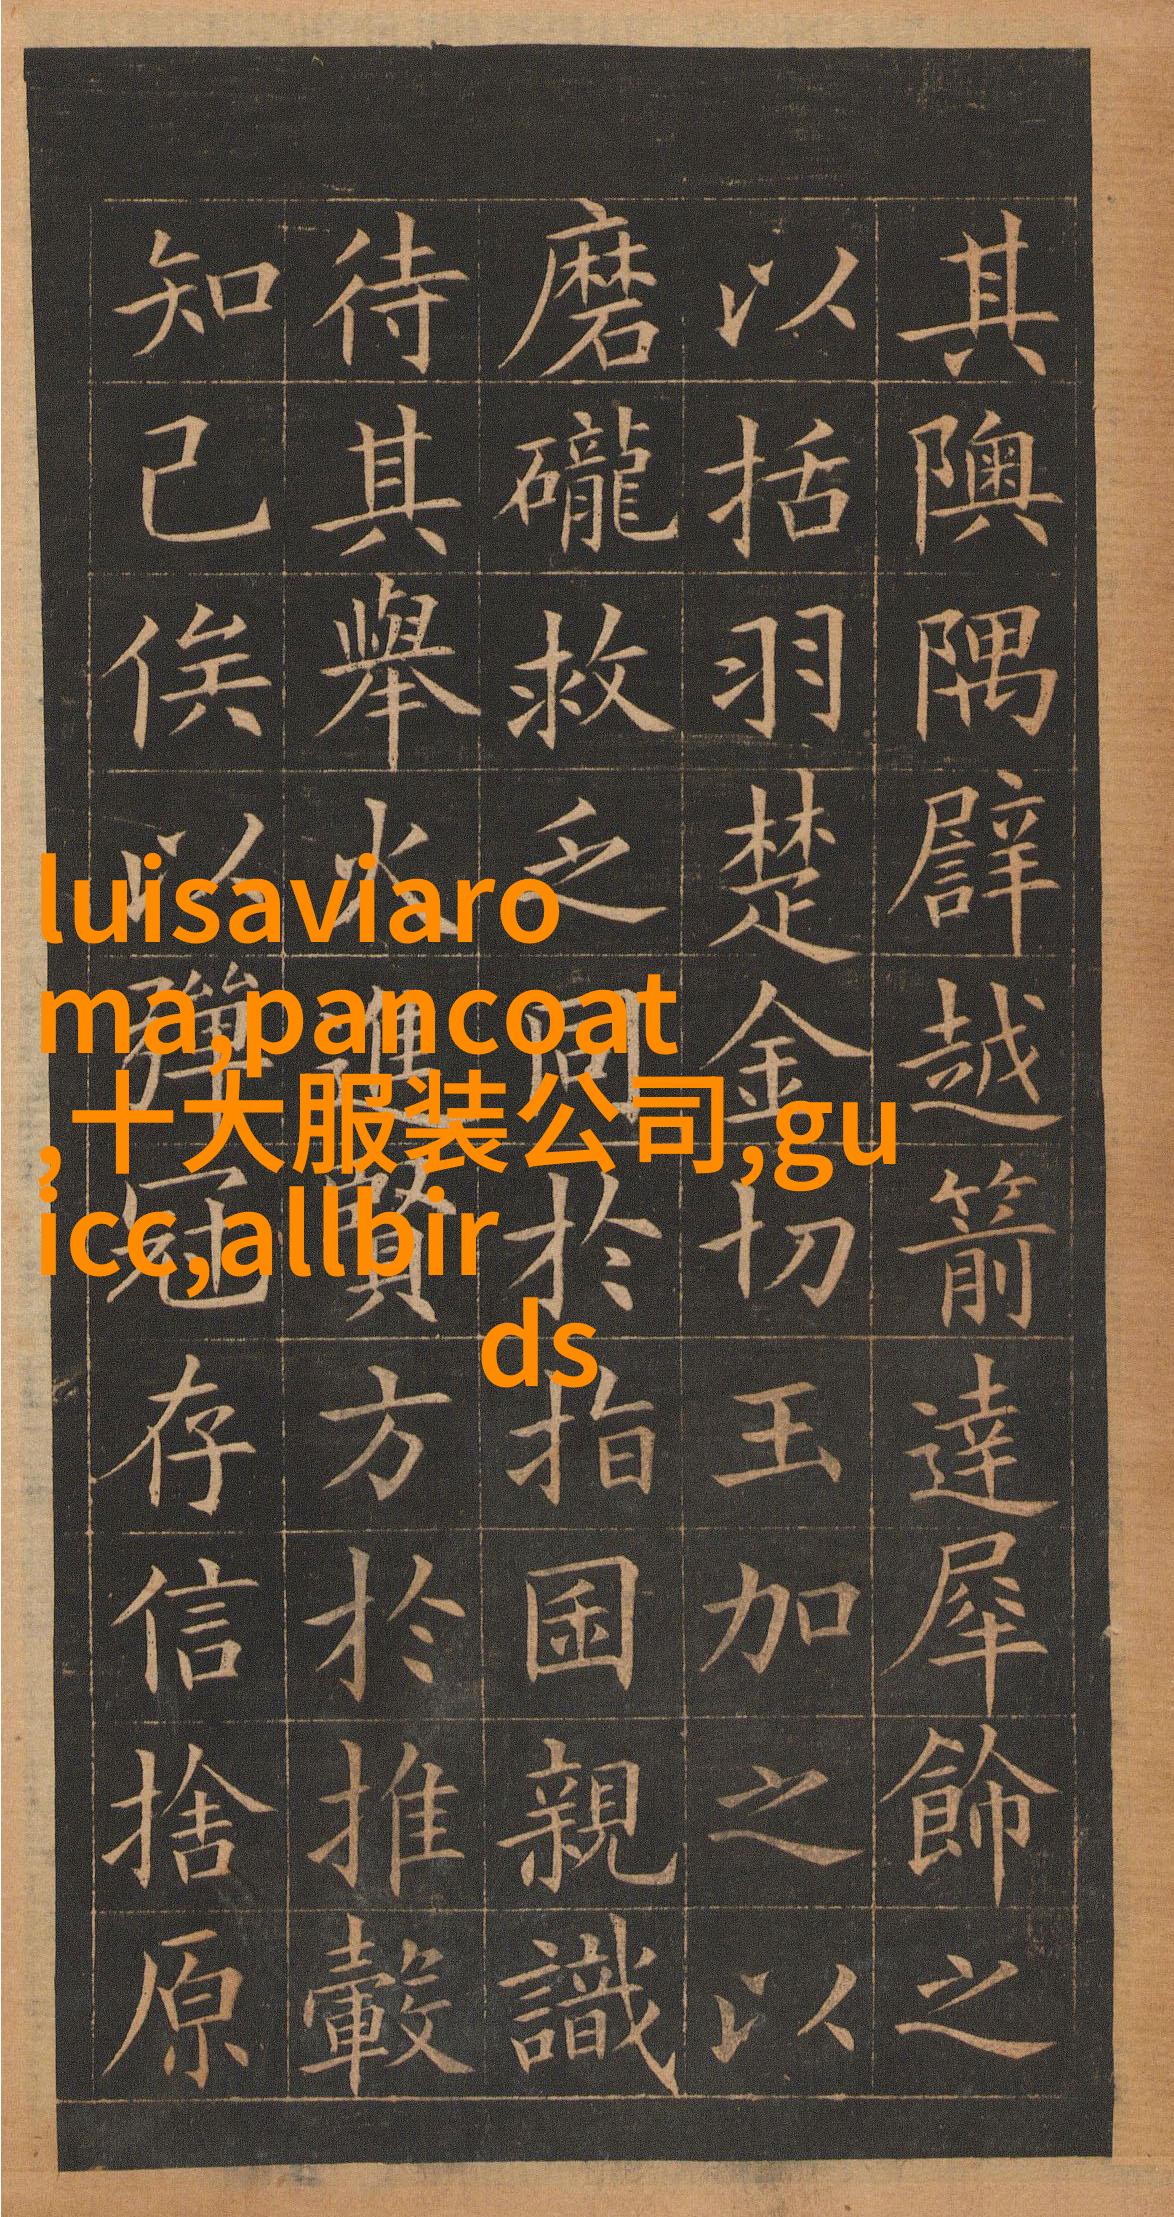 其隩隅譬越箭達犀飾之
以括羽楚金切玉加之以
磨礲救乏同於指囷親識
待其舉火進賢方於推轂
知己俟以彈冠存信捨原
luisaviaro
ma,pancoat
,十大服装公司,gu
icc,allbir
ds